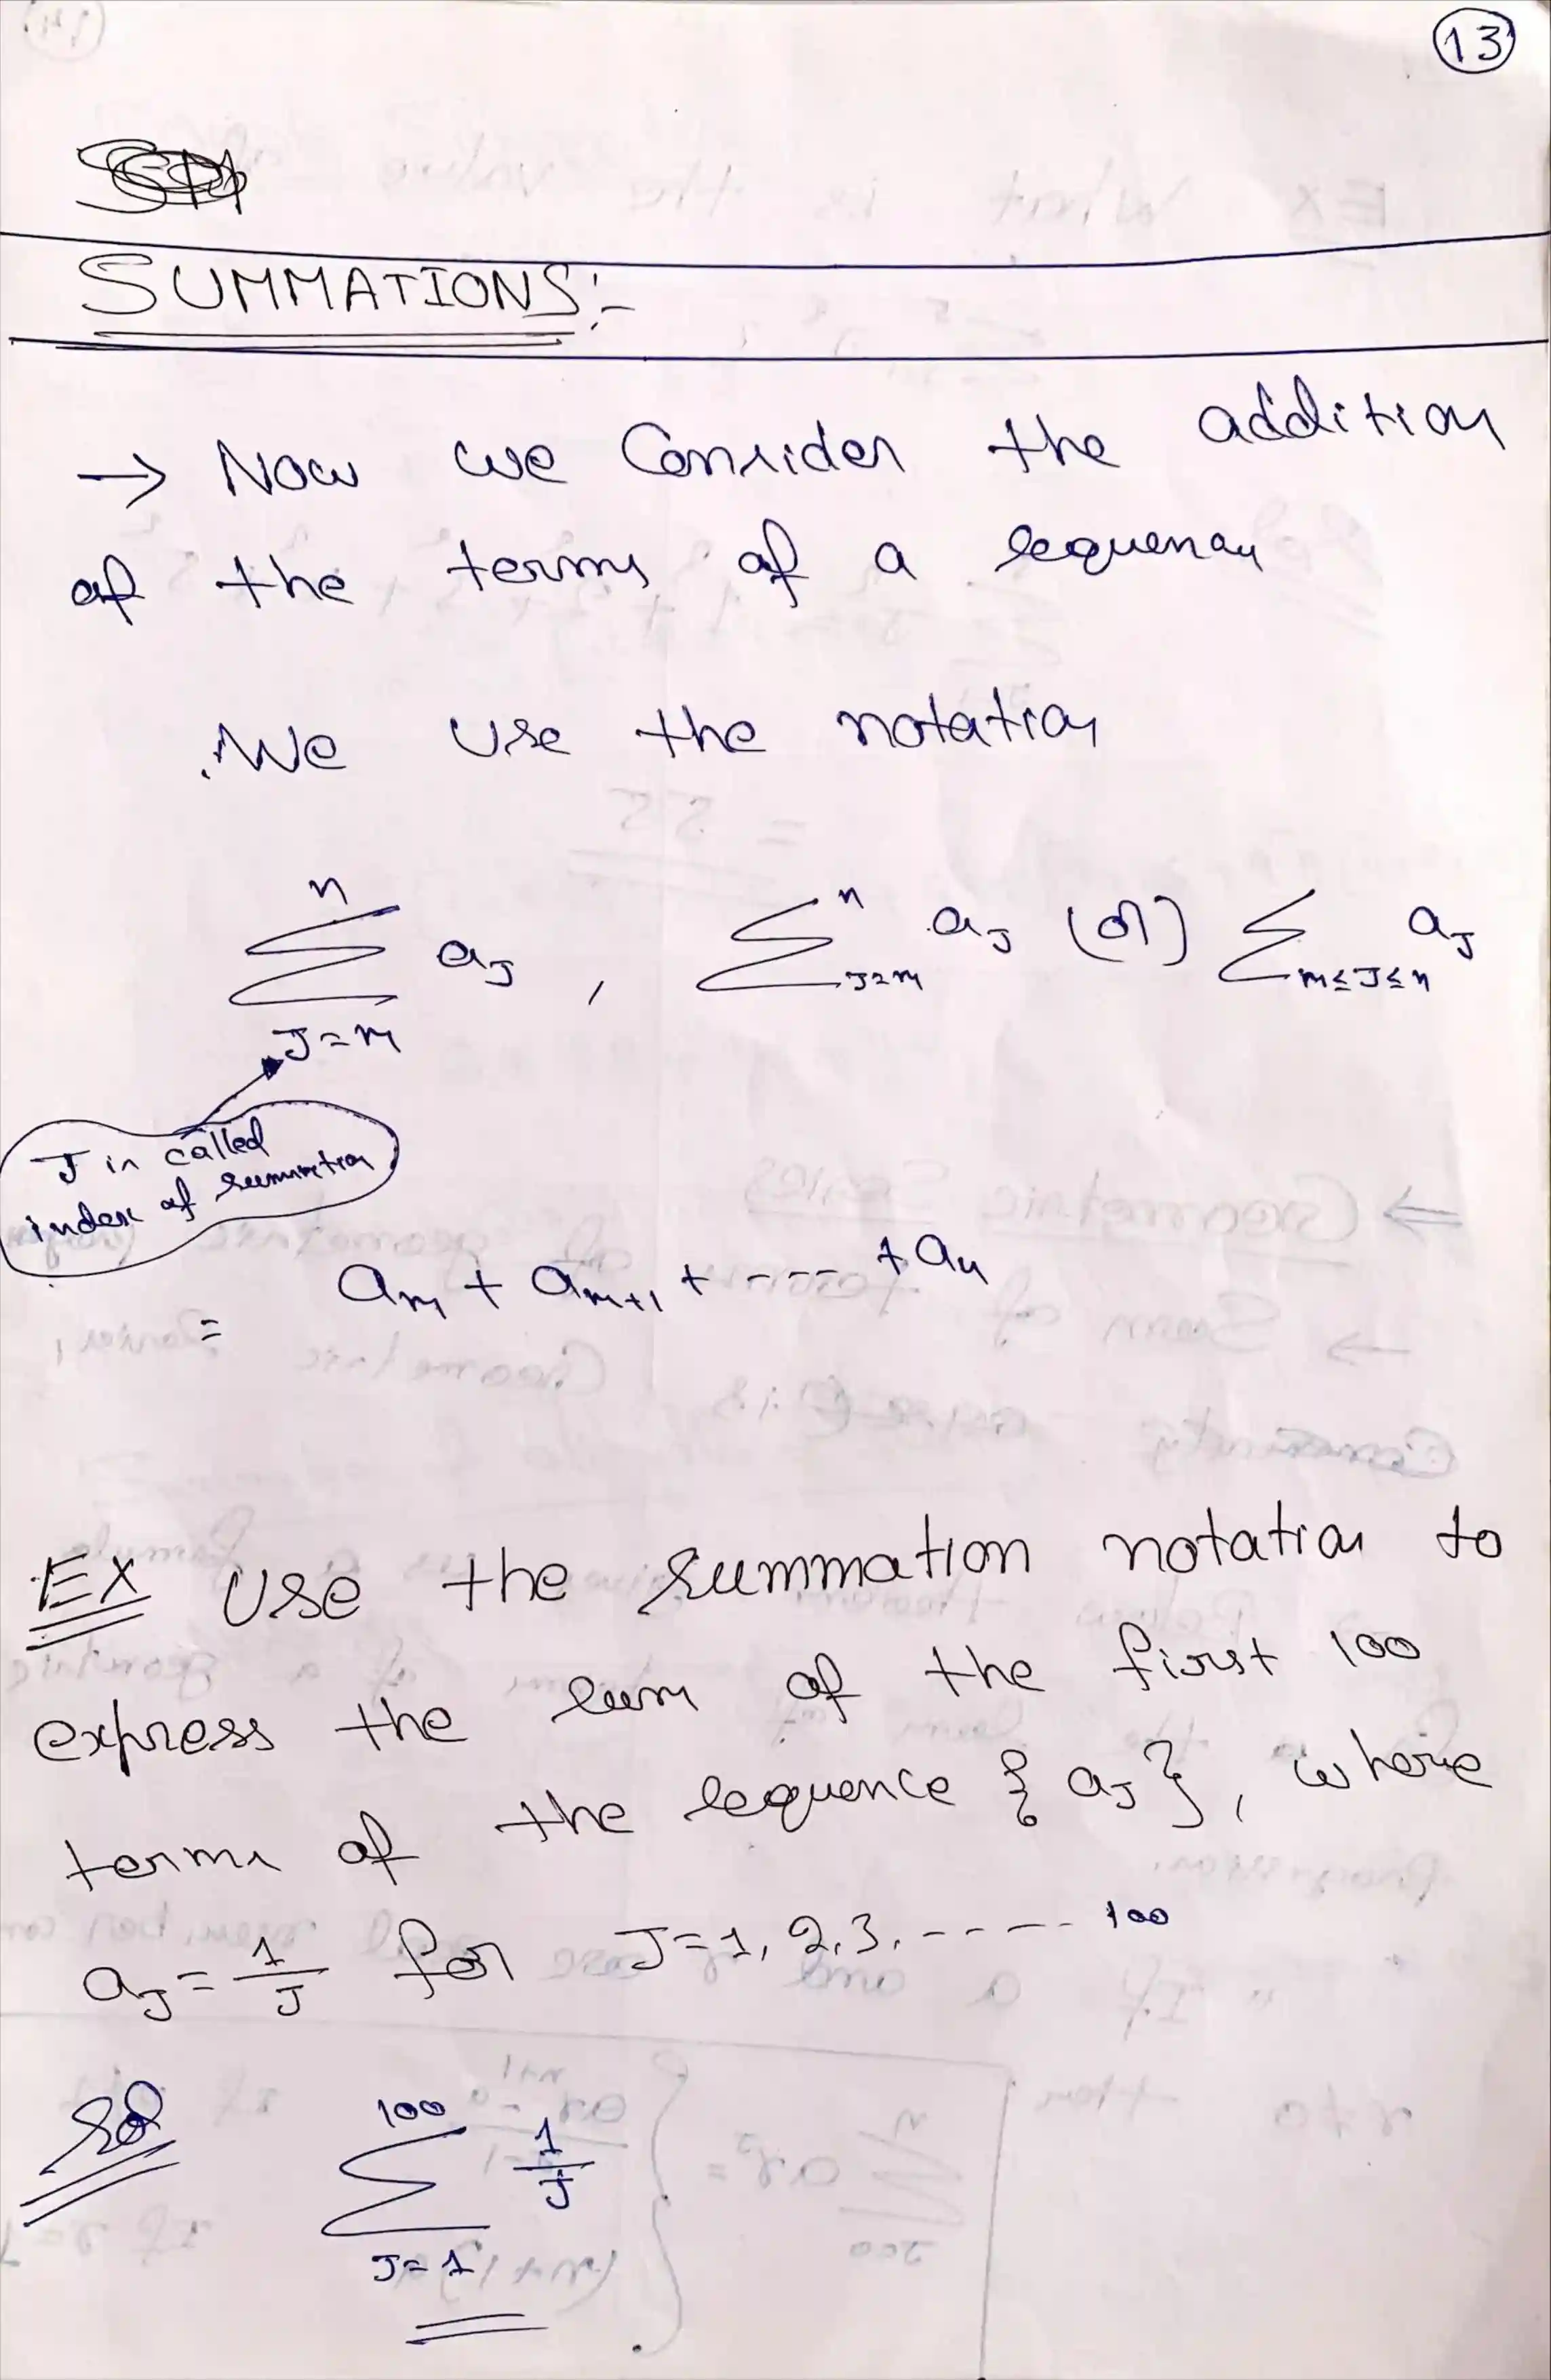 13
SUMMATIONS:-
→ Now we Consider the addition
of the terms of a sequence
We use the notation
n
∑ aJ , ∑ⁿJ=m aJ (or) ∑m≤J≤n aJ
J=m
J is called
index of summation
= am + am+1 + ---- + an
EX Use the summation notation to
express the sum of the first 100
terms of the sequence {aJ}, where
aJ = 1/J for J=1, 2, 3, ----- 100
Sol
100
∑ 1/J
J=1